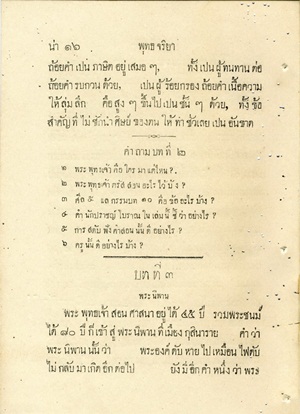 น่า ๑๖ พุทธ จริยา
ถ้อยคำ เปน ภาษิต อยู่ เสมอ ๆ, ทั้ง เปน ผู้ ทนทาน ต่อ
ถ้อยคำ รบกวน ด้วย, เปน ผู้ ร้อยกรอง ถ้อยคำ เนื้อความ
ให้ สุ่ม ลึก คือ สูง ๆ ขึ้น ไป เปน ชั้น ๆ ด้วย, ทั้ง ข้อ
สำคัญ ที่ ไม่ ชักนำ ศิษย์ ของตน ให้ ทำ ชั่วเลย เปน อันขาด
คำ ถาม บท ที่ ๒
๑ พระ พุทธเจ้า คือ ใคร มา แต่ไหน ?.
๒ พระพุทธเจ้า ตรัส สอน อะไร ไว้ บ้าง ?
๓ ศีล ๕ แล กรรมบท ๑๐ คือ ข้อ อะไร บ้าง ?
๔ คำ นักปราชญ์ โบราณ ใน เล่ม นี้ ชี้ ว่า อย่างไร ?
๕ การ สดับ ฟัง คำสอน นั้น ดี อย่างไร ?
๖ ครู นั้น ดี อย่างไร บ้าง ?
บท ที่ ๓
พระ นิพาน
พระ พุทธเจ้า สอน ศาสนา อยู่ ได้ ๔๕ ปี รวมพระชนม์
ได้ ๘๐ ปี ก็ เข้า สู่ พระ นิพาน ที่ เมือง กุสินาราย คำ ว่า
พระ นิพาน นั้น ว่า พระองค์ ดับ หาย ไป เหมือน ไฟดับ
ไม่ กลับ มา เกิด อีก ต่อ ไป ยัง มี อีก คำ หนึ่ง ว่า พระ